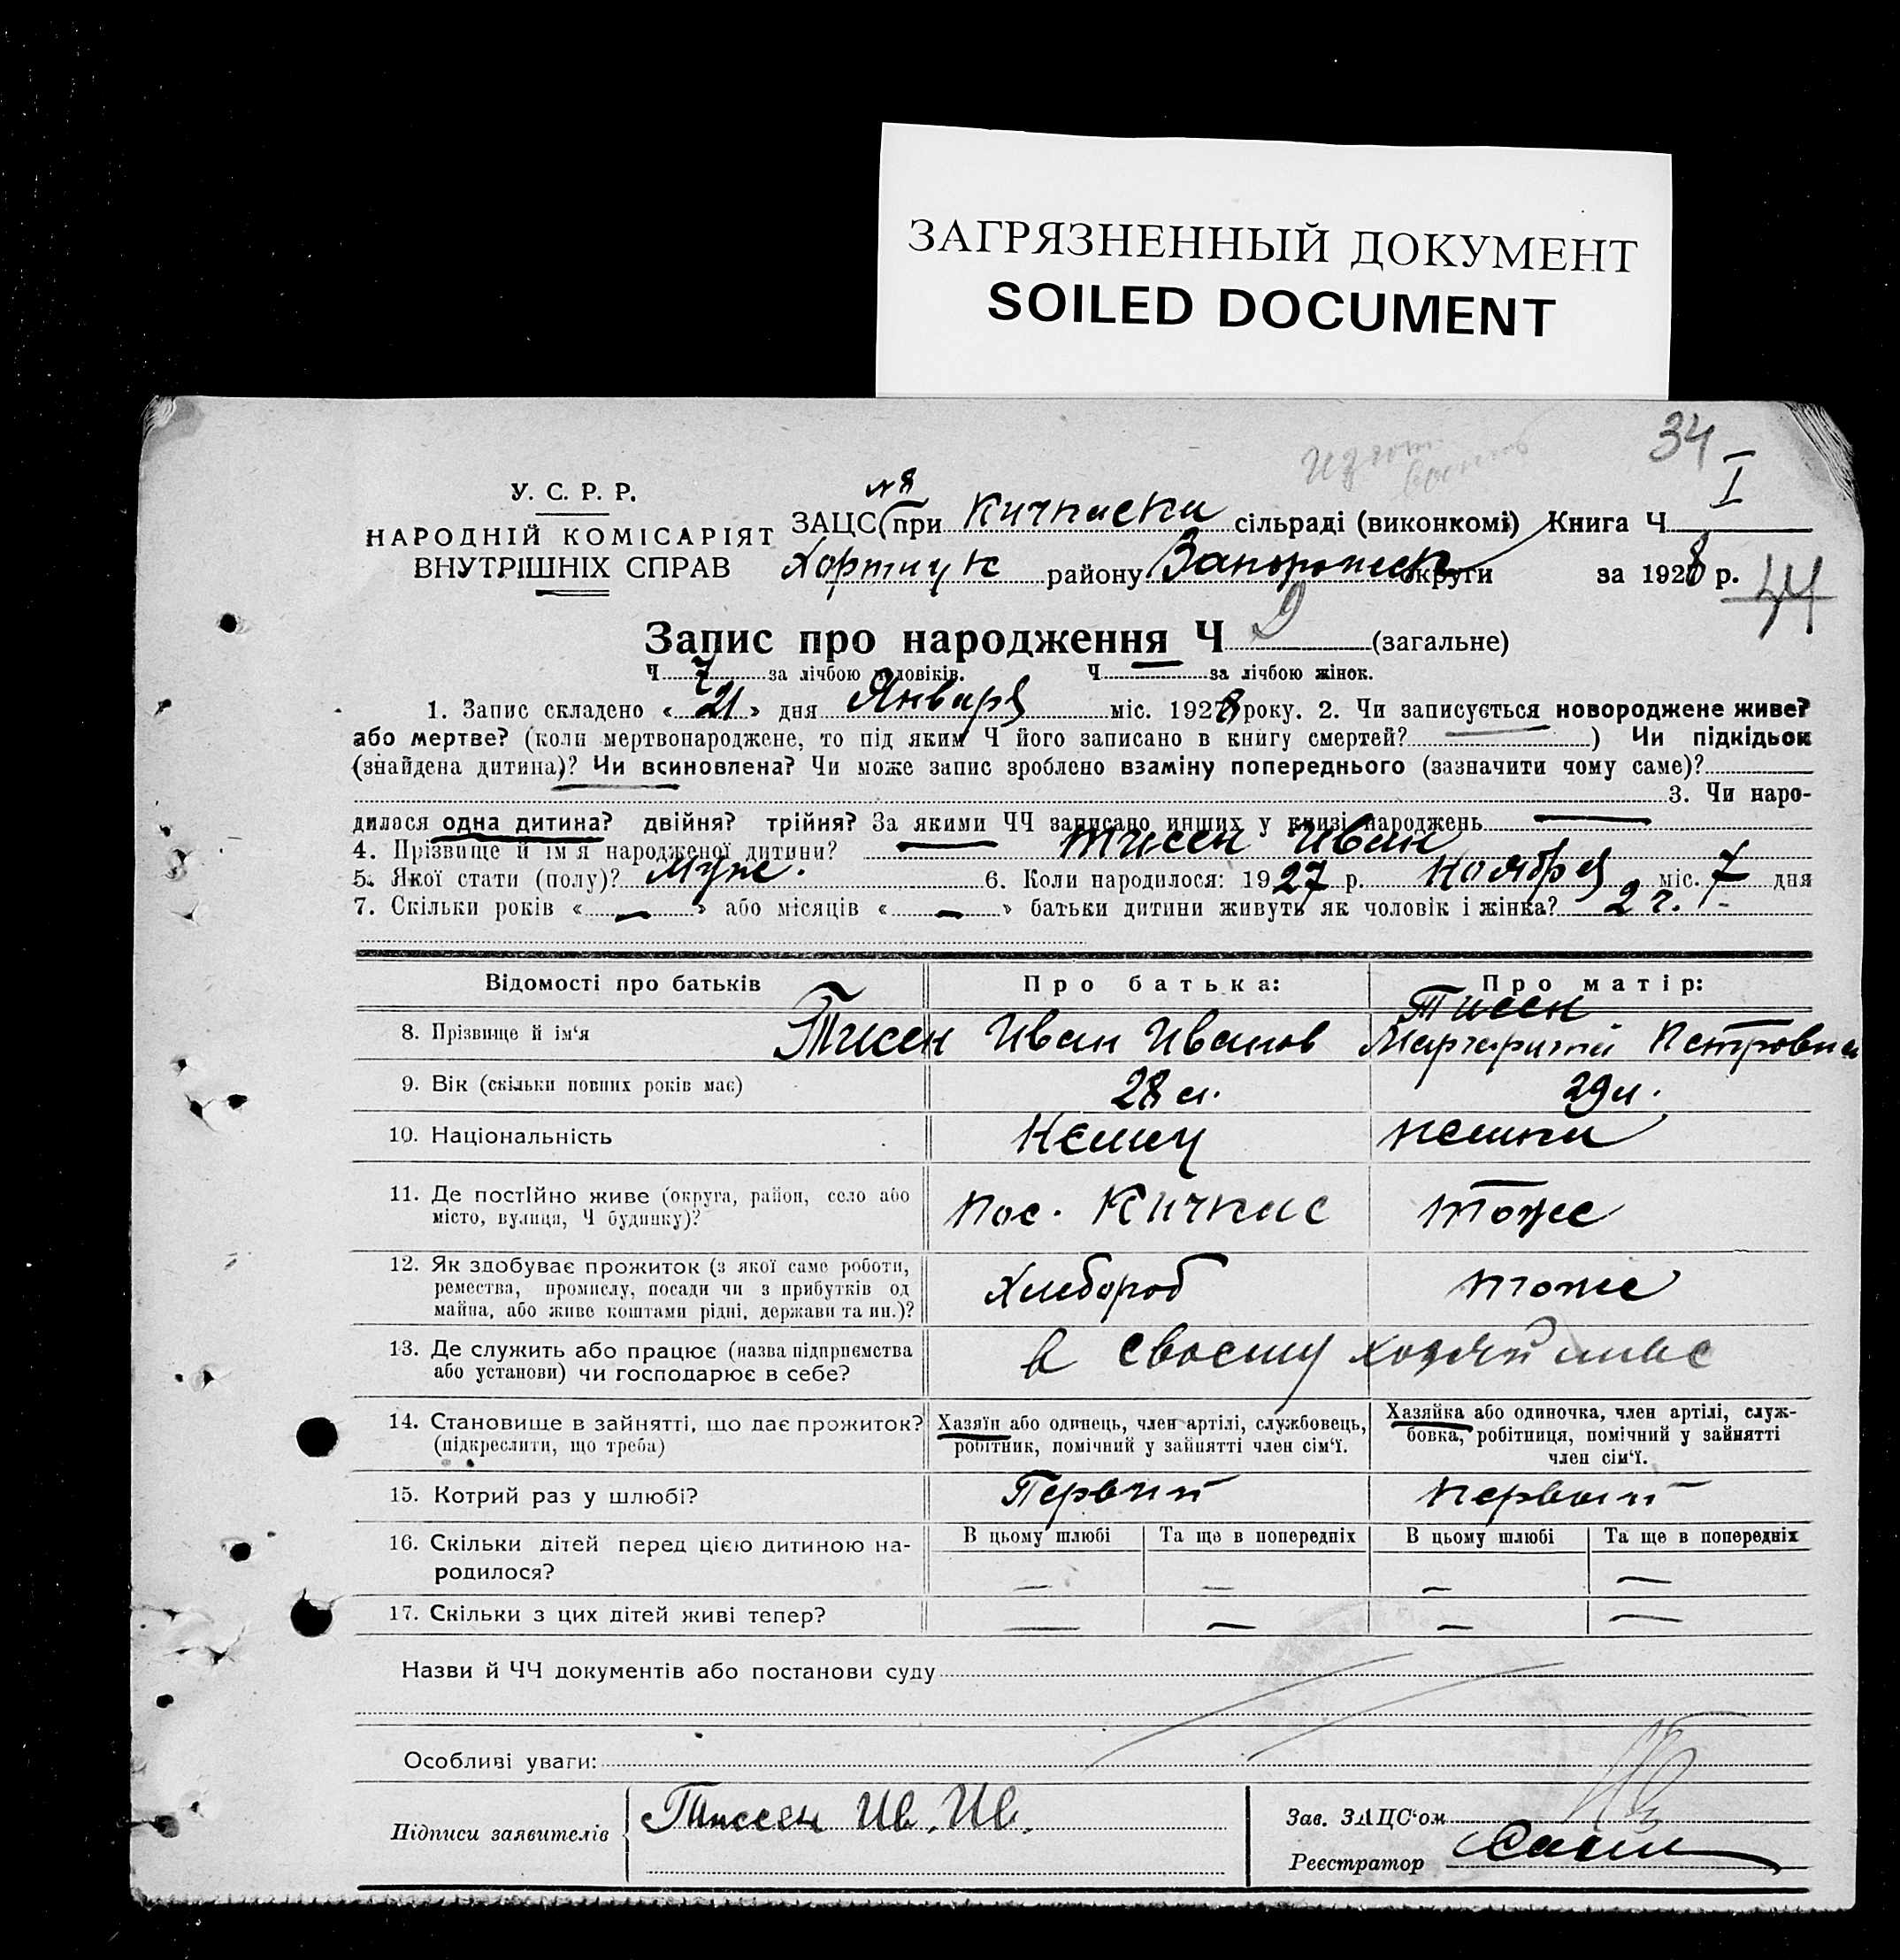 ЗАГРЯЗНЕННЫЙ ДОКУМЕНТ
SOILED DOCUMENT
34
I
У. С. Р. Р.
НАРОДНІЙ КОМІСАРІЯТ
ВНУТРІШНІХ СПРАВ
ЗАЦС (при Кичкаски сільраді (виконкомі) Книга Ч
Хортиц к району Запорожск округи за 1928 р.
44
Запис про народження Ч 9 (загальне)
Ч 7 за лічбою чоловіків. Ч — за лічбою жінок.
1. Запис складено « 21 » дня Января міс. 1928 року. 2. Чи записується новороджене живе?
або мертве? (коли мертвонароджене, то під яким Ч його записано в книгу смертей? ) Чи підкідьок
(знайдена дитина)? Чи всиновлена? Чи може запис зроблено взаміну попереднього (зазначити чому саме)?
3. Чи наро-
дилася одна дитина? двійня? трійня? За якими ЧЧ записано инших у книзі народжень —
4. Прізвище й ім'я народженої дитини? — Тисен Иван
5. Якої стати (полу)? муж. 6. Коли народилося: 1927 р. Ноября міс. 7 дня
7. Скільки років « — » або місяців « — » батьки дитини живуть як чоловік і жінка? 2 г.
Відомості про батьків Про батька: Про матір:
8. Прізвище й ім'я Тисен Иван Иванов Тисен Маргарита Петровна
9. Вік (скільки повних років має) 28 л. 29 л.
10. Національність Немец немка
11. Де постійно живе (округа, район, село або
місто, вулиця, Ч будинку)? пос. Кичкас тоже
12. Як здобуває прожиток (з якої саме роботи,
ремества, промислу, посади чи з прибутків од
майна, або живе коштами рідні, держави та ин.)? Хлебороб тоже
13. Де служить або працює (назва підприємства
або установи) чи господарює в себе? в своему хозяйстве
14. Становище в зайнятті, що дає прожиток?
(підкреслити, що треба)
Хазяїн або одинець, член артілі, службовець,
робітник, помічний у зайнятті член сім'ї.
Хазяйка або одиночка, член артілі, служ-
бовка, робітниця, помічний у зайнятті
член сім'ї.
15. Котрий раз у шлюбі? Первий первый
16. Скільки дітей перед цією дитиною на-
родилося?
В цьому шлюбі Та ще в попередніх В цьому шлюбі Та ще в попередніх
— — — —
17. Скільки з цих дітей живі тепер? — — — —
Назви й ЧЧ документів або постанови суду
Особливі уваги:
Підписи заявителів Тиссен Ив. Ив.
Зав. ЗАЦС'ом
Реєстратор